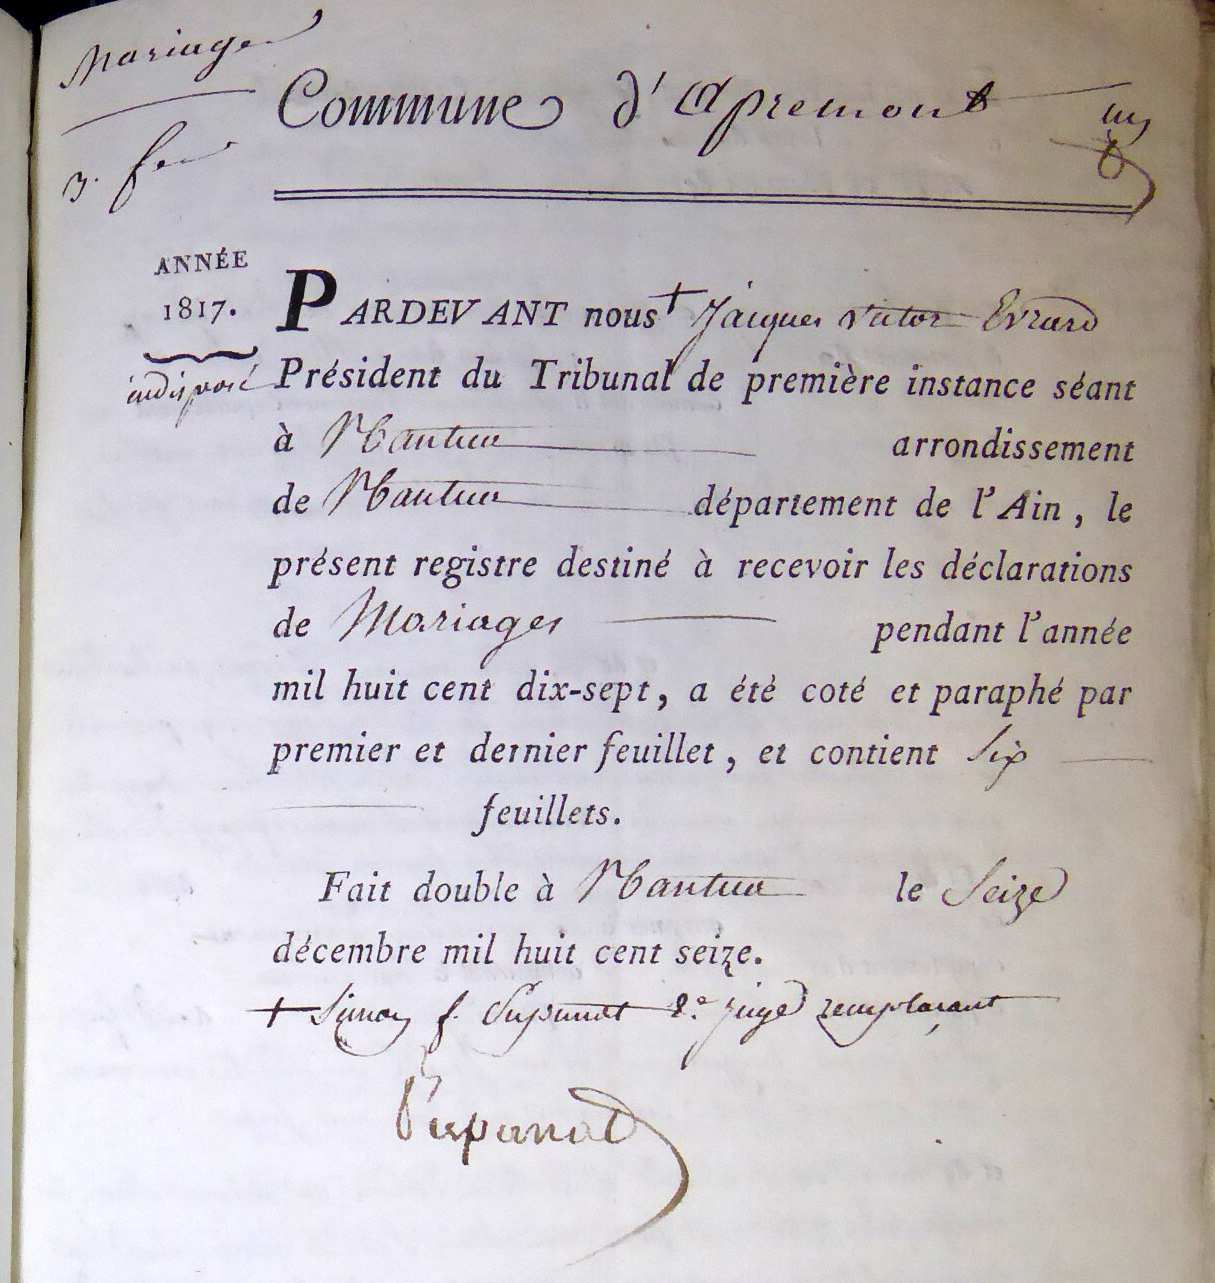 Mariage
Commune d'apremont
un
3. f.
ANNÉE
1817.
PARDEVANT nous + Jacques victor Evrard
indisposé Président du Tribunal de première instance séant
à Nantua arrondissement
de Nantua département de l'Ain, le
présent registre destiné à recevoir les déclarations
de Mariages pendant l'année
mil huit cent dix-sept, a été coté et paraphé par
premier et dernier feuillet, et contient Six
feuillets.
Fait double à Nantua le Seize
décembre mil huit cent seize.
+ Simon f. 2e. juge remplaçant